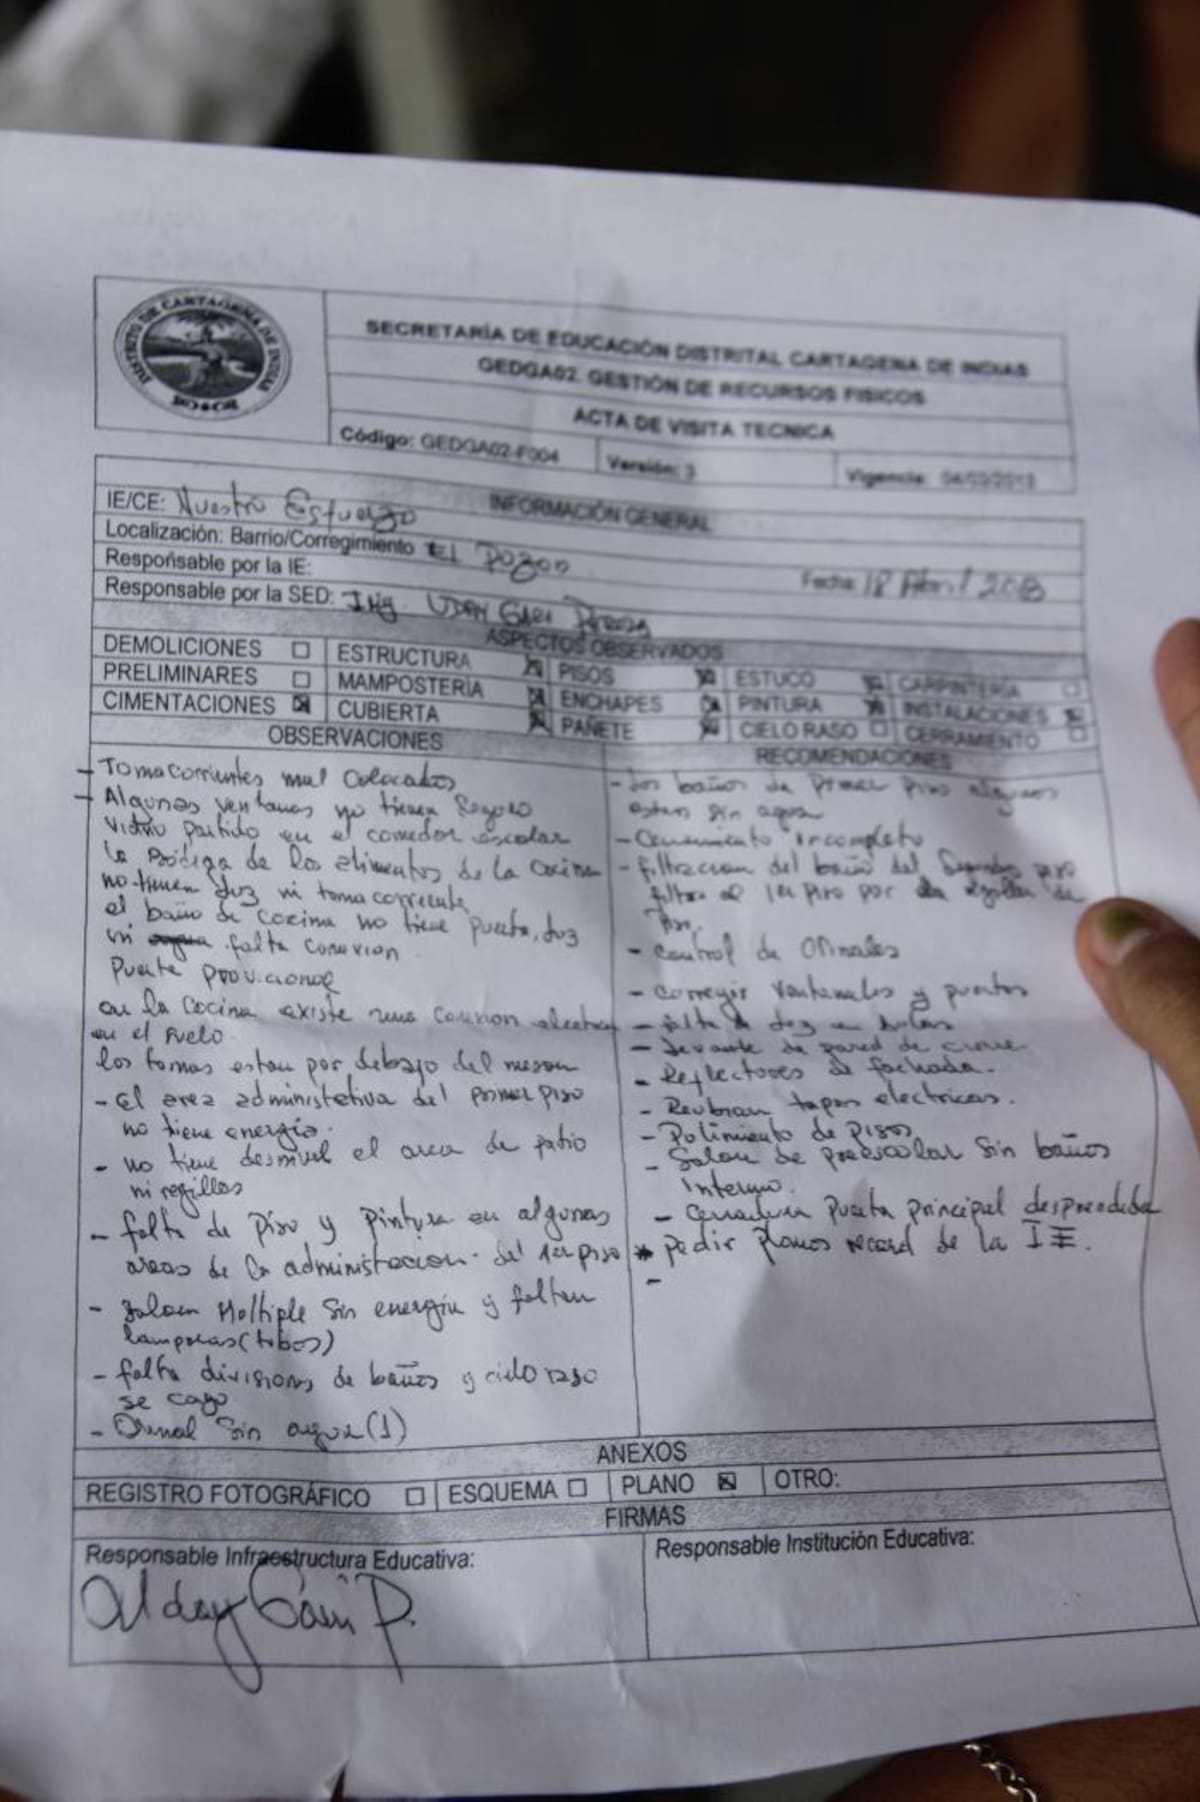 DISTRITO DE CARTAGENA DE INDIAS
SECRETARÍA DE EDUCACIÓN DISTRITAL CARTAGENA DE INDIAS
GEDGA02. GESTIÓN DE RECURSOS FISICOS
ACTA DE VISITA TECNICA
Código: GEDGA02-F004 Versión: 3 Vigencia:
INFORMACIÓN GENERAL
IE/CE: Nuestro Esfuerzo
Localización: Barrio/Corregimiento El Pozon
Responsable por la IE: Fecha: 18 Abril
Responsable por la SED: Ing.
ASPECTOS OBSERVADOS
DEMOLICIONES ESTRUCTURA PISOS ESTUCO CARPINTERÍA
PRELIMINARES MAMPOSTERÍA ENCHAPES PINTURA INSTALACIONES
CIMENTACIONES CUBIERTA PAÑETE CIELO RASO CERRAMIENTO
OBSERVACIONES
- Tomacorrientes mal colocados
- Algunas ventanas no tienen seguro
vidrio partido en el comedor escolar
la Bodega de los alimentos de la cocina
no tienen luz ni tomacorriente
el baño de cocina no tiene puerta, luz
ni falta conexion
Puerta provicional
en la cocina existe una conexion
en el suelo
los tomas estan por debajo del meson
- El area administrativa del primer piso
no tiene energia.
- no tiene desnivel el area de patio
ni regillas
- falta de piso y pintura en algunas
areas de la administracion del 1er piso
- Salon Multiple sin energia y faltan
lamparas (tubos)
- falta divisiones de baños y cielo raso
se cayo
- Orinal sin agua (1)
RECOMENDACIONES
- Los baños de primer piso algunos
estan sin agua
- Cerramiento incompleto
- filtracion del baño del Segundo piso
filtra al 1er piso por
- control de Orinales
- corregir ventanales y puertas
- falta de luz en
- de pared de cierre
- Reflectores de fachada.
- tapas electricas.
- Polimiento de pisos
- Salon de preescolar sin baños
Interno.
- Cerradura puerta principal desprendida
* pedir planos record de la IE.
-
ANEXOS
REGISTRO FOTOGRÁFICO ESQUEMA PLANO OTRO:
FIRMAS
Responsable Infraestructura Educativa:
Responsable Institución Educativa: